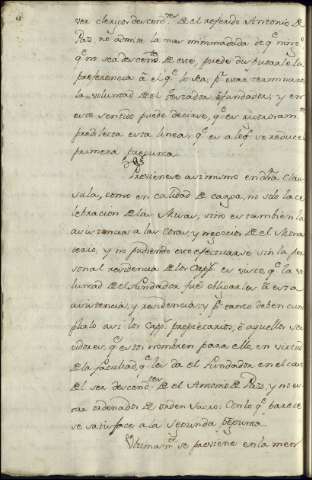 ser clerigo descend.te de el referido Antonio de
Paz no admite la mas minima duda de q.e ning.o
q.e no sea descend.te de este, puede disputarle la
preferencia á el q.e lo sea, p.r estar terminante
la voluntad de el testador ó fundador; y en
este sentido puede decirse, q.e es
predilecta esta linea; q.e es a lo q.e se reduce
primera pregunta.
Previenese asimismo en dha clau-
sula, como en calidad de carga, no solo la ce-
lebracion de las Misas, sino es tambien la
asistencia a las cosas y negocios de el Mona-
sterio, y no pudiendo este efectuarse sin la per-
sonal residencia de los Capp.s es visto q.e la vo-
luntad de el fundador fue obligarles á esta
asistencia, y residencia; y p.r tanto deben cum-
plirlo asi los Capp.s propietarios, ó aquellos ser-
vidores, q.e estos nombren para ello, en virtud
de la facultad, q.e les da el fundador en el caso
de ser descend.tes de el Antonio de Paz, y no es-
tar ordenados de orden sacro. Con lo q.e parece
se satisface a la segunda pregunta.
Ultimam.te se previene en la men-